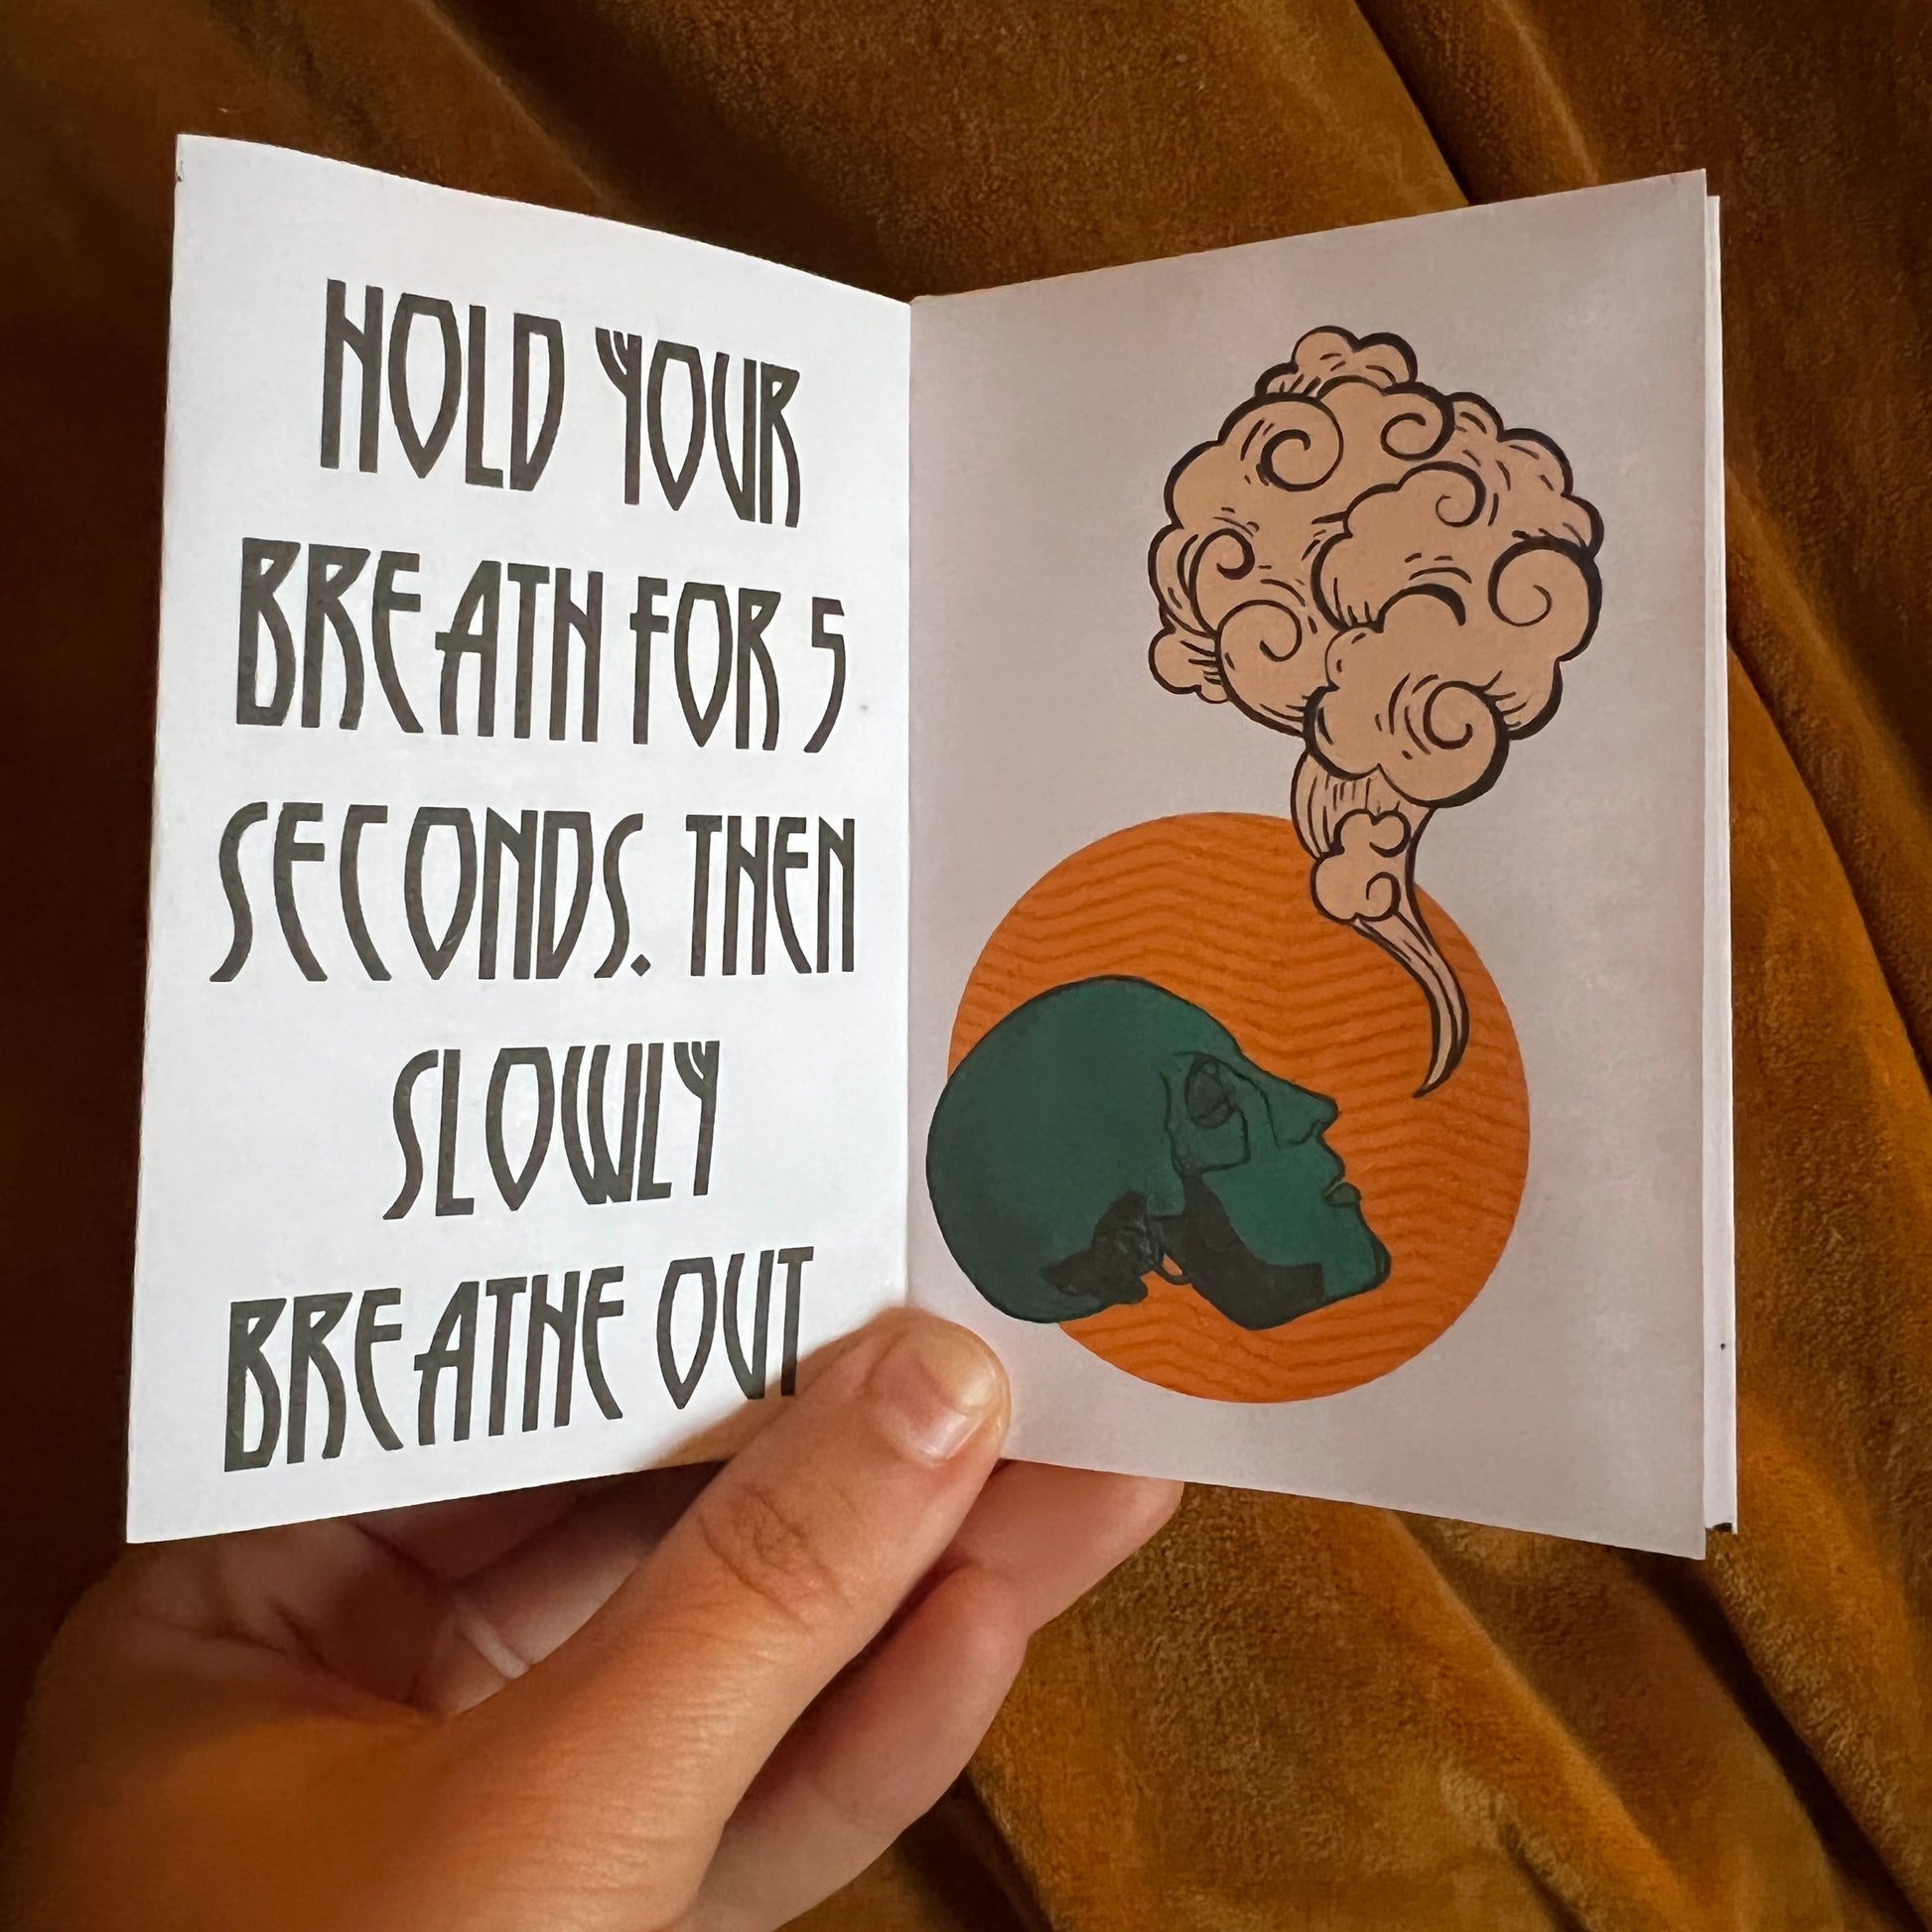 HOLD YOUR
BREATH FOR 5
SECONDS. THEN
SLOWLY
BREATHE OUT